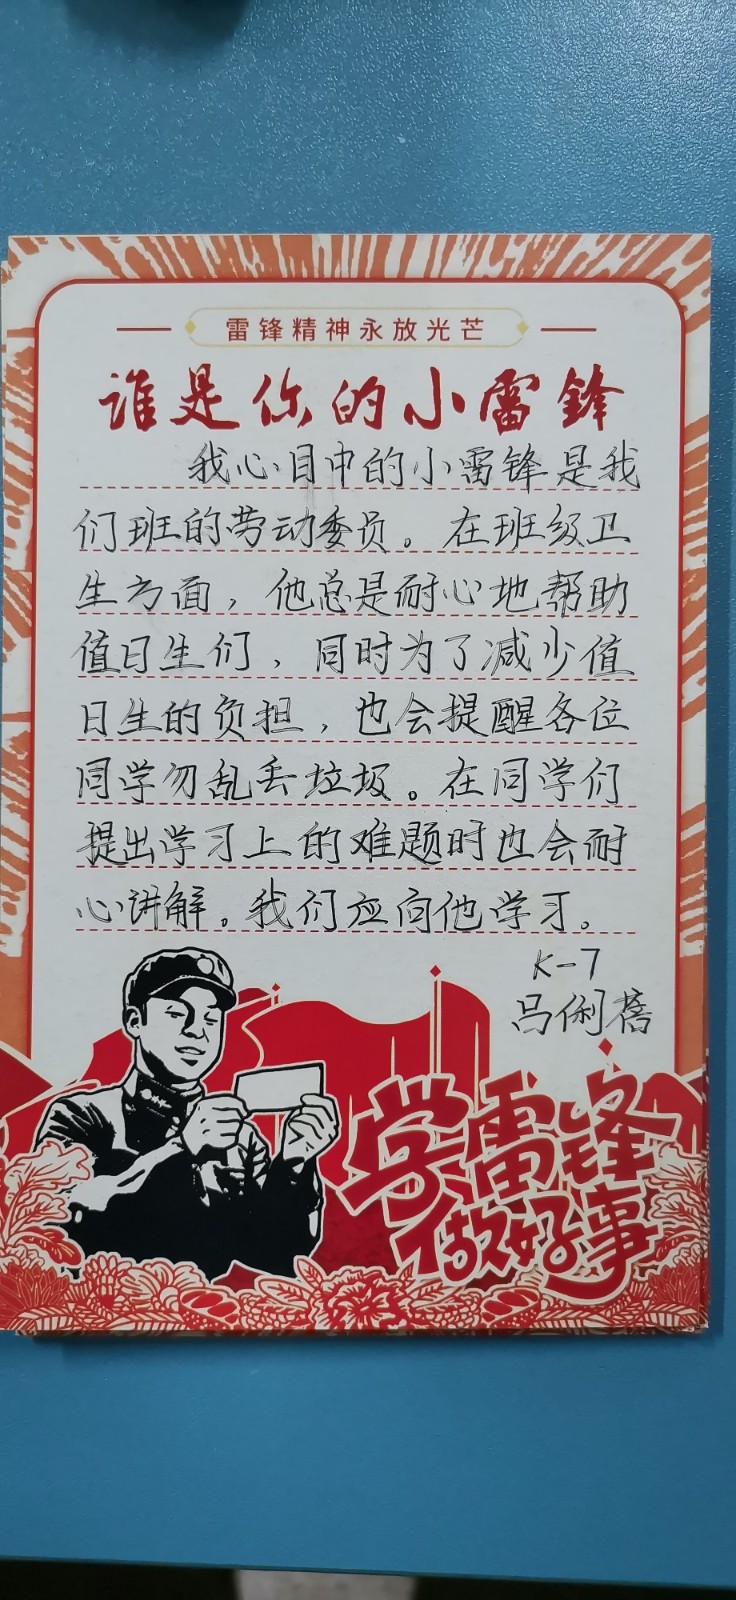 雷锋精神永放光芒
谁是你的小雷鋒
我心目中的小雷锋是我
们班的劳动委员。在班级卫
生方面，他总是耐心地帮助
值日生们，同时为了减少值
日生的负担，也会提醒各位
同学勿乱丢垃圾。在同学们
提出学习上的难题时也会耐
心讲解。我们应向他学习。
K-7
吕俐蓓
学雷锋
做好事